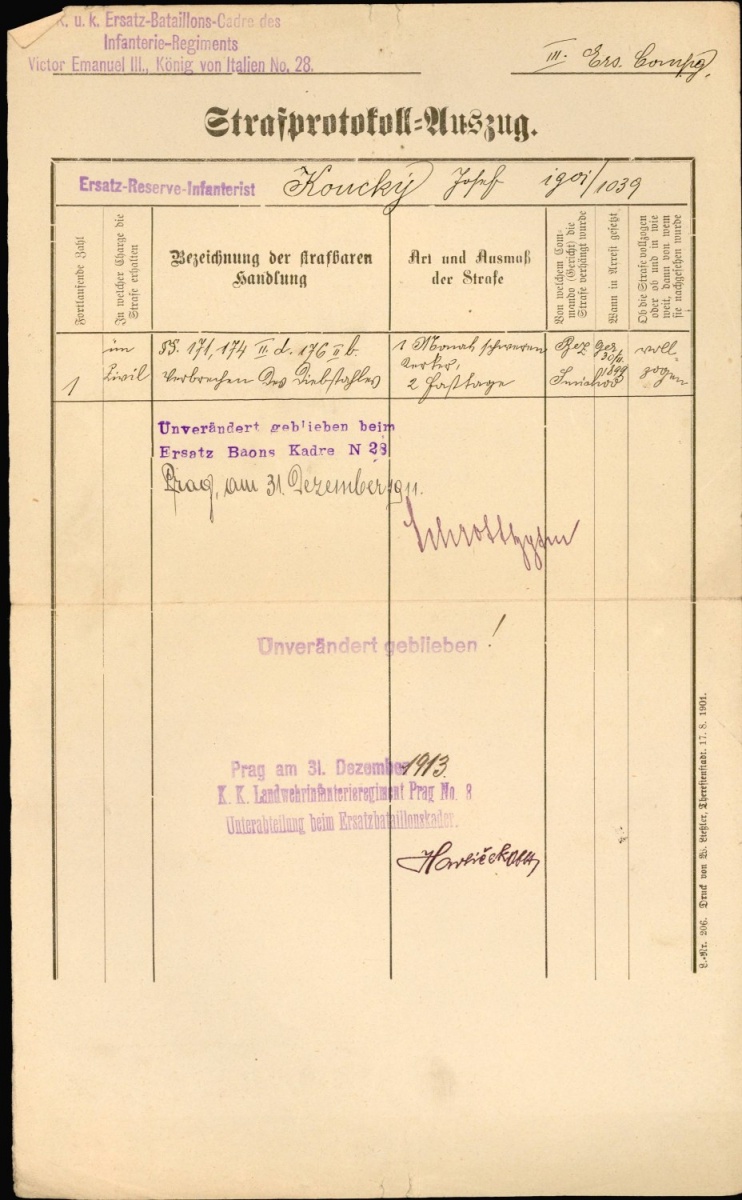 K. u. k. Ersatz-Bataillons-Cadre des
Infanterie-Regiments
Victor Emanuel III., König von Italien No. 28.
III. Ers. Compg.
Strafprotokoll-Auszug.
Ersatz-Reserve-Infanterist Koucký Josef 1901/1039
Fortlaufende Zahl
In welcher Charge die Strafe erhalten
Bezeichnung der strafbaren
Handlung
Art und Ausmaß
der Strafe
Von welchem Commando (Gericht) die Strafe verhängt wurde
Wann in Arrest gesetzt
Ob die Strafe vollzogen oder ob und in wie weit, dann von wem sie nachgesehen wurde
1
im
Civil
§§. 171, 174 II. d. 176 II b.
Verbrechen des Diebstahles
1 Monat schweren
Kerker,
2 Fasttage
Bez. Ger.
Smichov
30/11.
1899
voll-
zogen
Unverändert geblieben beim
Ersatz Baons Kadre N 28
Prag, am 31. Dezember 1911.
Unverändert geblieben!
Prag am 31. Dezember 1913.
K. K. Landwehrinfanterieregiment Prag No. 8
Unterabteilung beim Ersatzbataillonskader.
Havlíček
L.-Nr. 206. Druck von W. Ließler, Theresienstadt. 17. 8. 1901.